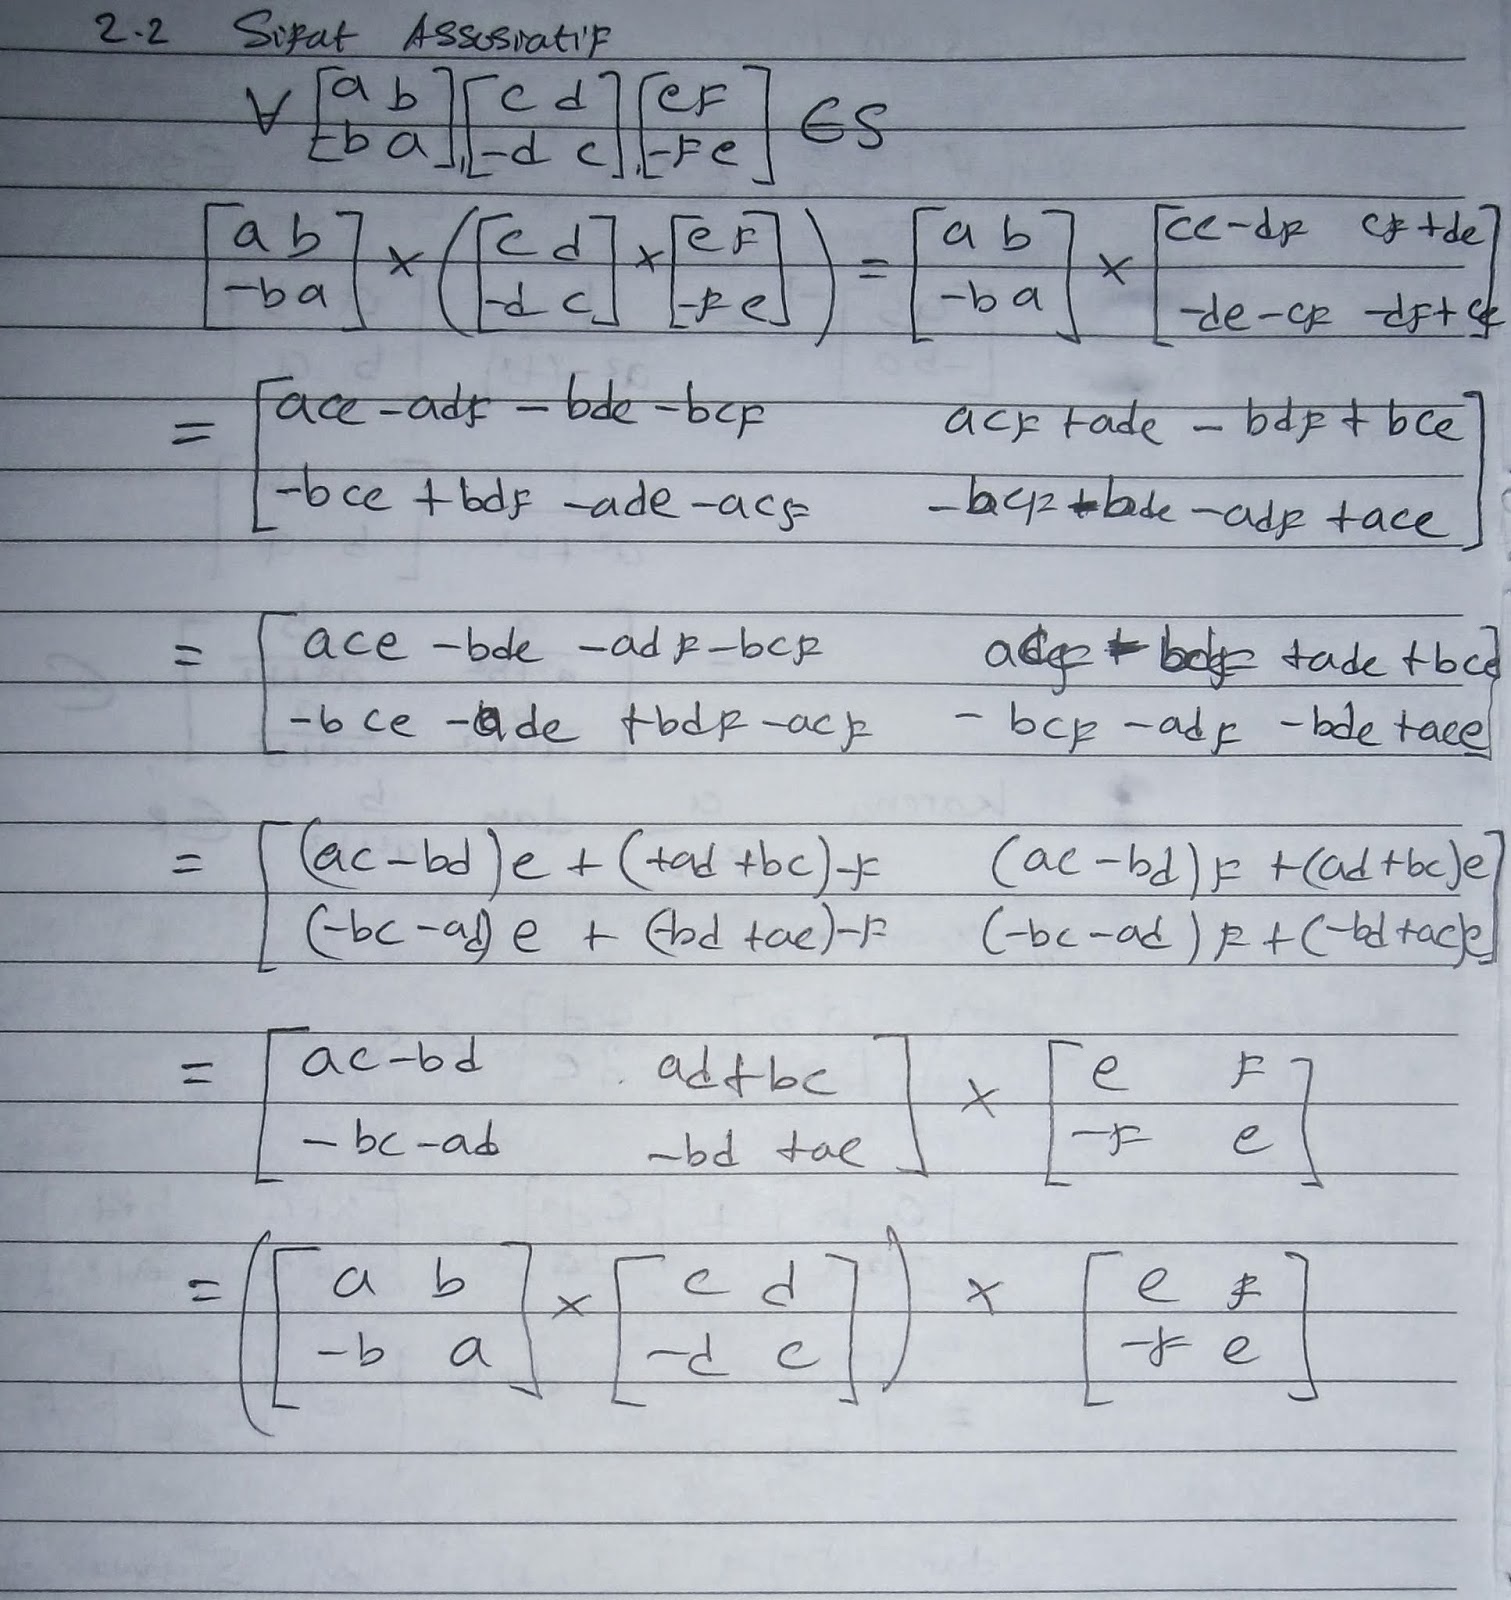 2.2 Sifat Assosiatif
∀ [a b
-b a], [c d
-d c], [e F
-F e] ∈ S
[a b
-b a] × ([c d
-d c] × [e F
-F e]) = [a b
-b a] × [ce-dF cF+de
-de-cF -dF+ce]
= [ace - adF - bde - bcF acF + ade - bdF + bce
-bce + bdF - ade - acF -bcF - bde - adF + ace]
= [ace - bde - adF - bcF acF - bdF + ade + bce
-bce - ade + bdF - acF - bcF - adF - bde + ace]
= [(ac-bd)e + (+ad+bc)-F (ac-bd)F + (ad+bc)e
(-bc-ad)e + (-bd+ae)-F (-bc-ad)F + (-bd+ac)e]
= [ac-bd ad+bc
-bc-ad -bd+ae] × [e F
-F e]
= ([a b
-b a] × [c d
-d c]) × [e F
-F e]